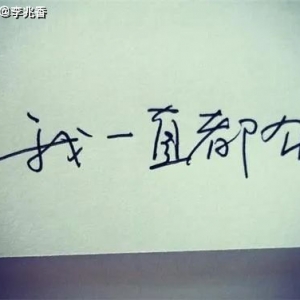 @李兆香
我一直都在